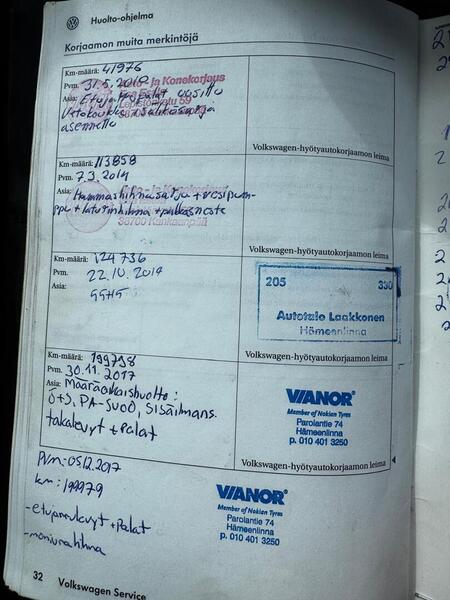 Huolto-ohjelma
Korjaamon muita merkintöjä
Km-määrä: 41976
Pvm. 31.5.2010
Asia: Etujarrupalat
asennettu
Volkswagen-hyötyautokorjaamon leima
Km-määrä: 113858
Pvm. 7.3.2014
Asia: Hammashihnasarja + vesipum-
ppu + laturinhihna + jakkosneste
38700 Kankaanpää
Volkswagen-hyötyautokorjaamon leima
Km-määrä: 124736
Pvm. 22.10.2014
Asia:
205 330
Autotalo Laakkonen
Hämeenlinna
Volkswagen-hyötyautokorjaamon leima
Km-määrä: 199798
Pvm. 30.11.2017
Asia: Määräaikaishuolto:
Ö+S, PA-SUOD, Sisäilmans.
takalevyt + palat
VIANOR
Member of Nokian Tyres
Parolantie 74
Hämeenlinna
p. 010 401 3250
Volkswagen-hyötyautokorjaamon leima
Pvm: 05.12.2017
km: 199979
- etujarrulevyt + palat
- moniurahihna
VIANOR
Member of Nokian Tyres
Parolantie 74
Hämeenlinna
p. 010 401 3250
32 Volkswagen Service